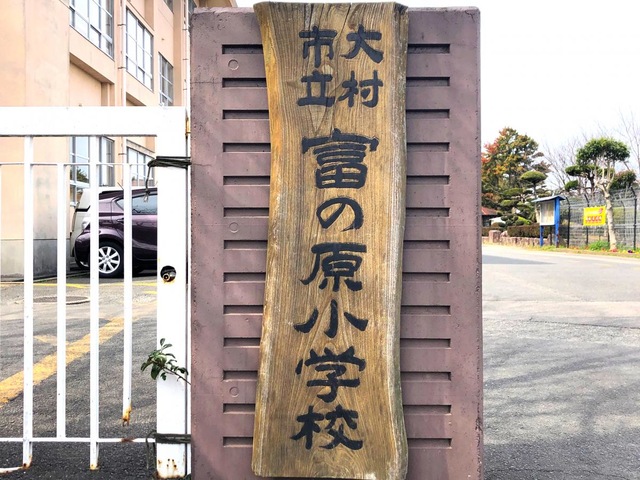 大村
市立
富の原小学校